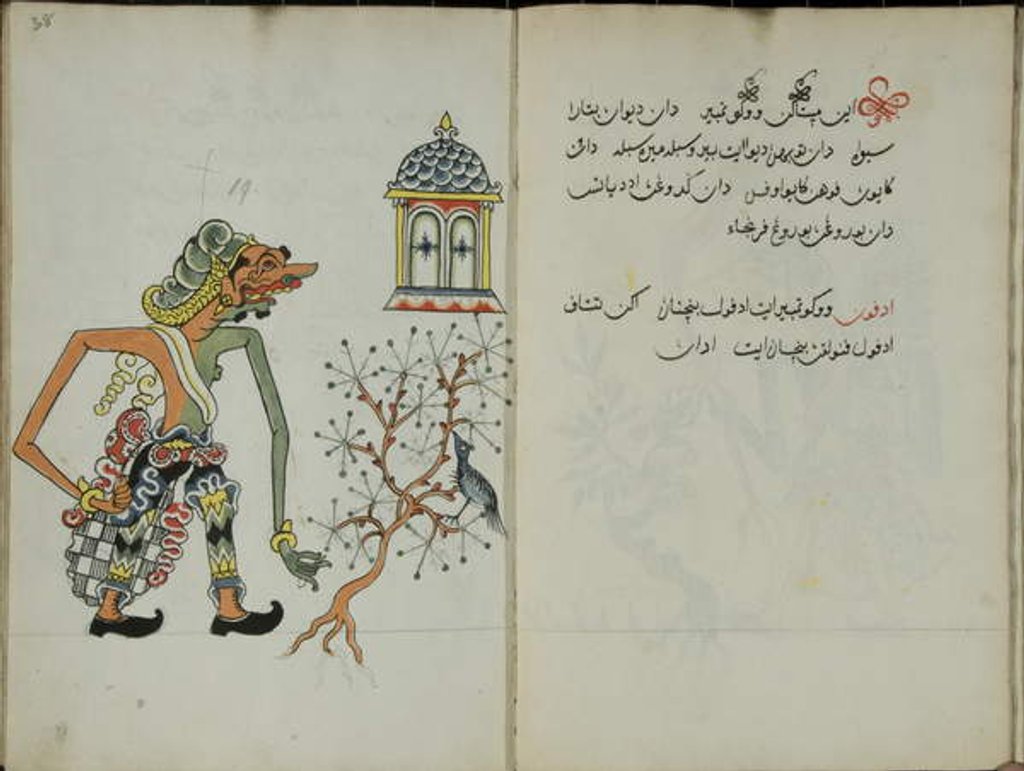 38
19.
اين ميتاكن ووكو تمبير دان ديوان بتارا
سيوه دان ديوا ايت بيرو سبله ميره سبله دان
كايون فوهن كايو اوفس دان كدوغن اد دباتس
دان بوروغن بوروغ فرنجاء
ادفون ووكو تمبير ايت ادفول بينچنان اكن تتاف
ادفول فنولق بينچنان ايت ادان